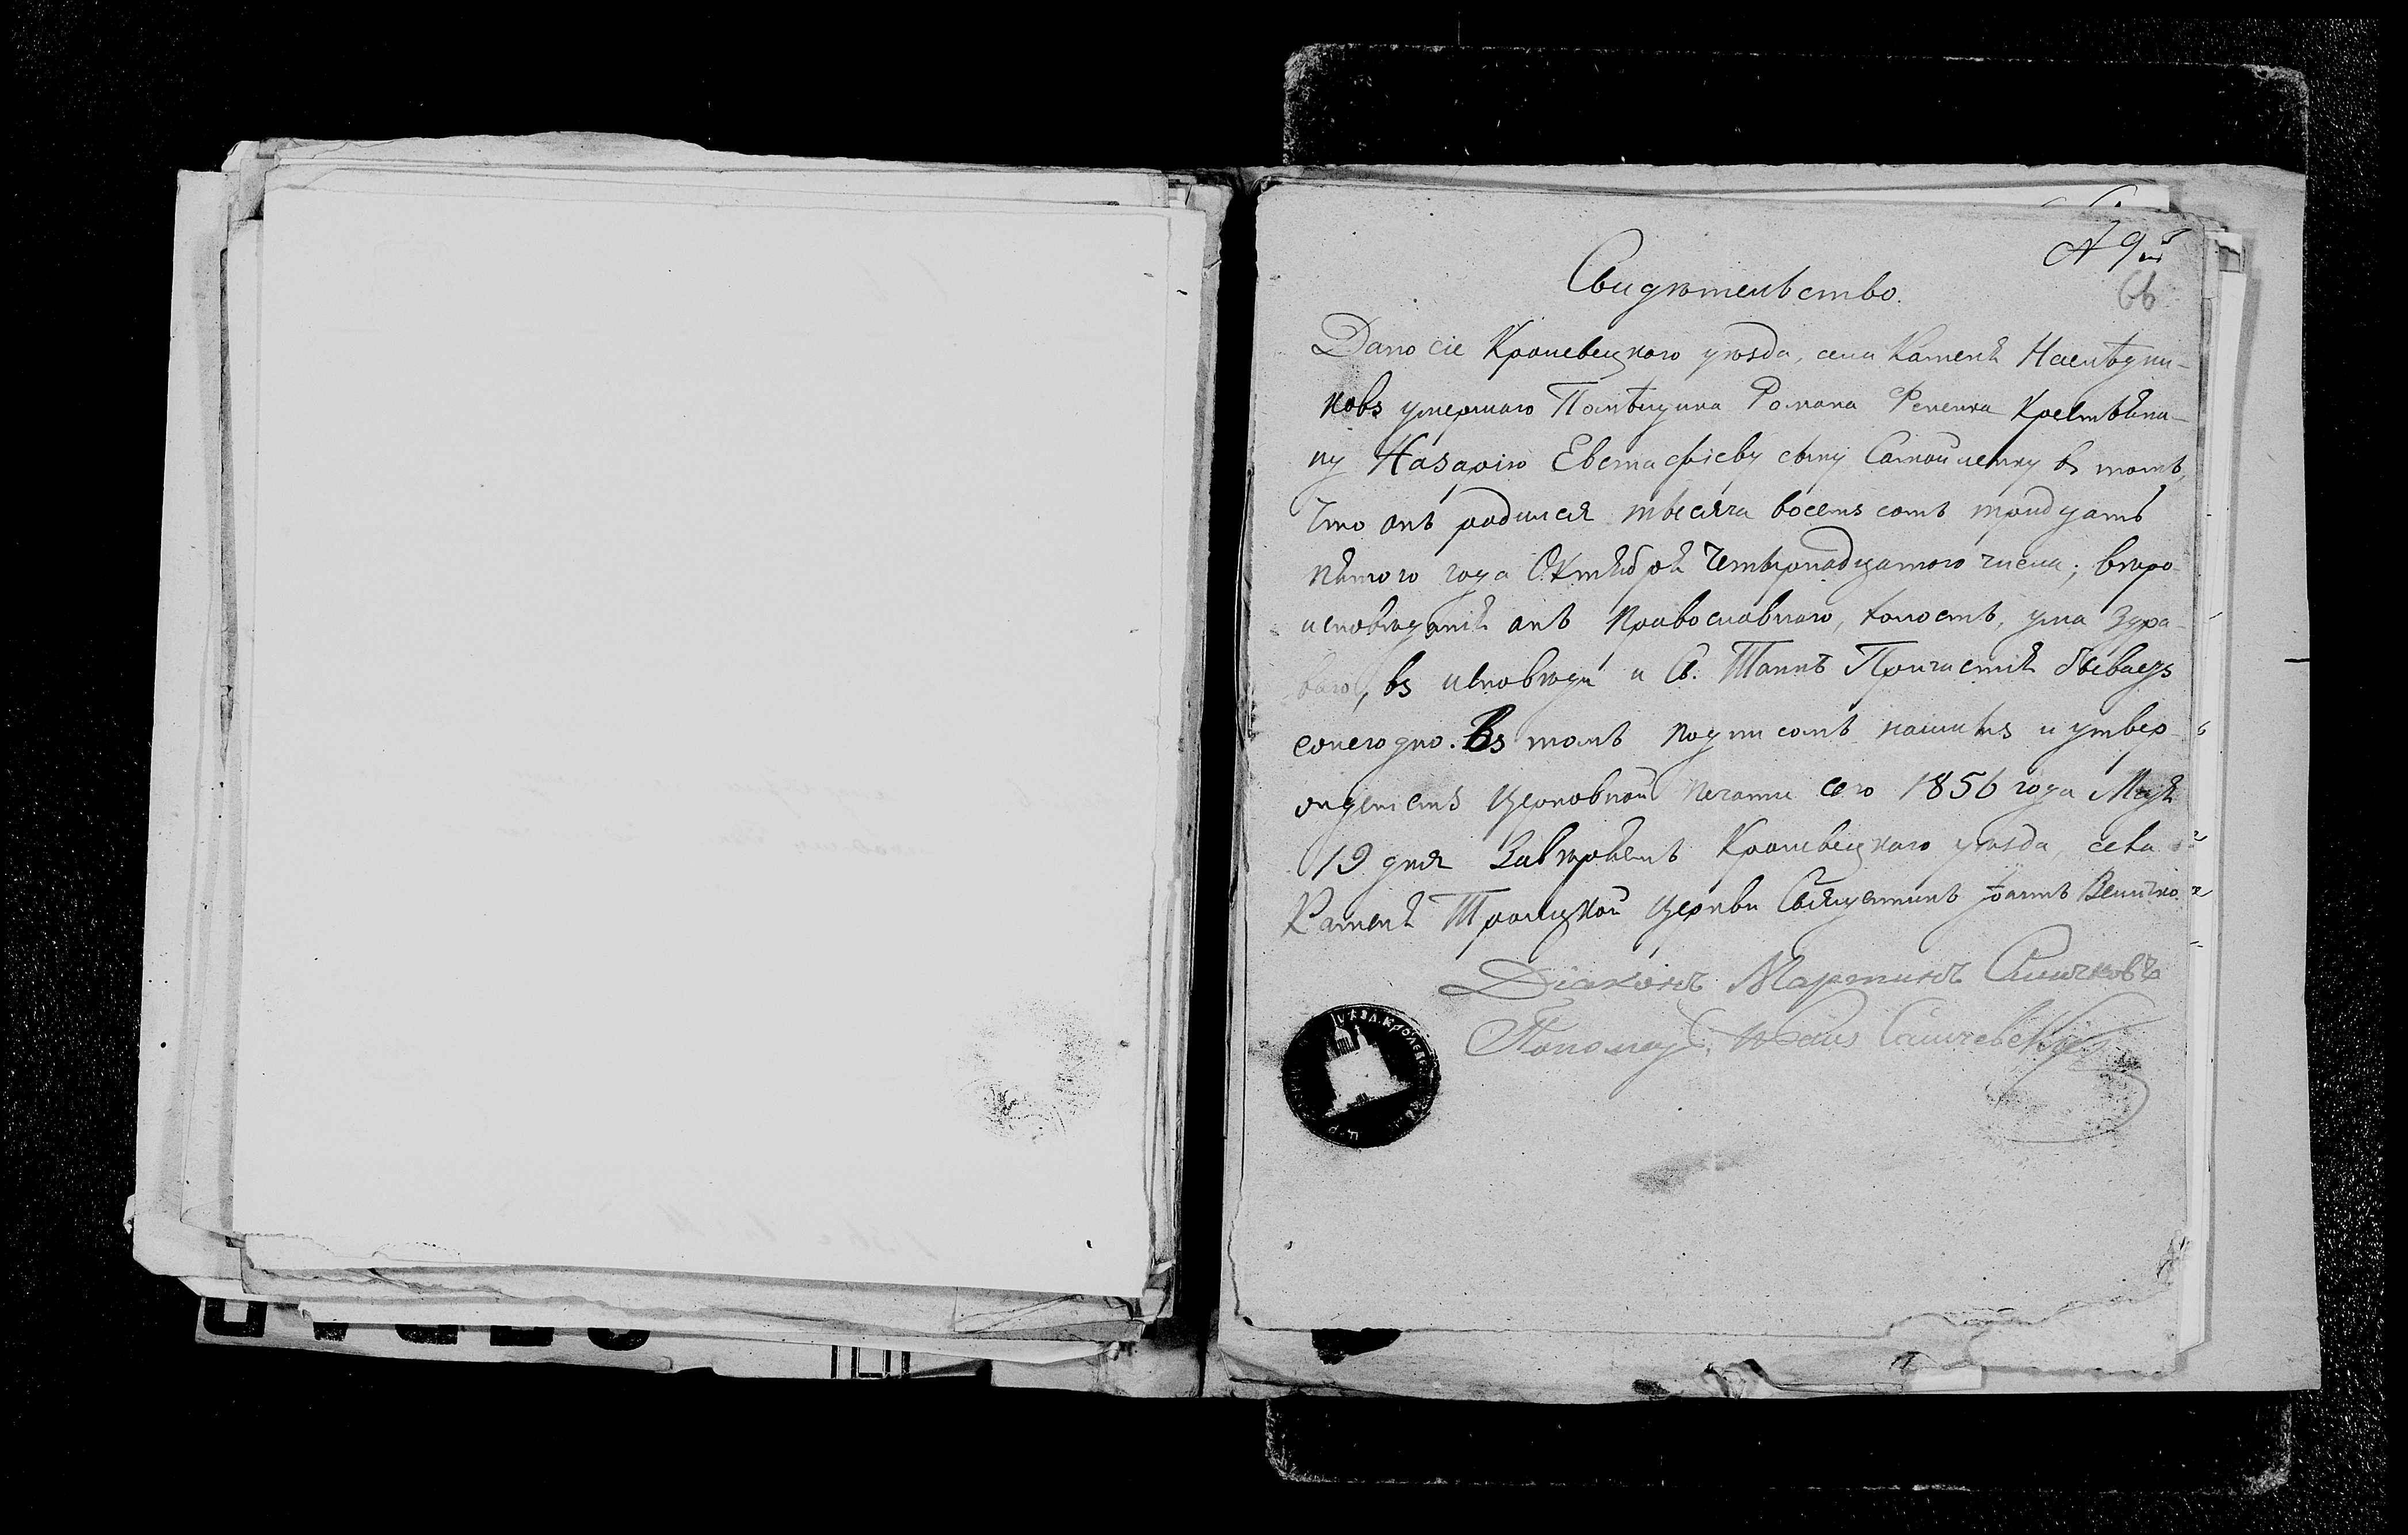 № 9й
66
Свидѣтельство.
Дано сіе Кролевецкого уѣзда, села Каменя Наслѣдни-
ковъ умершаго Помѣщика Романа Рененка Крестьяни-
ну Назарію Евстафіеву сыну Самойленку въ томъ,
Что онъ родился тысяча восемь сотъ тридцать
пятого года Октября Четырнадцатого числа; вѣро-
исповѣданія онъ Православнаго, холостъ, ума здра-
ваго, въ исповѣди и Св. Таинъ Причастія бываетъ
ежегодно. Въ томъ подписомъ нашимъ и утвер-
жденіемъ Церковной печати сего 1856 года Мая
19 дня Завѣряемъ Кролевецкаго уѣзда, села
Каменя Троицкой Церкви Священникъ Іоаннъ Величко
Діаконъ Мартинъ Сличковъ
Пономарь